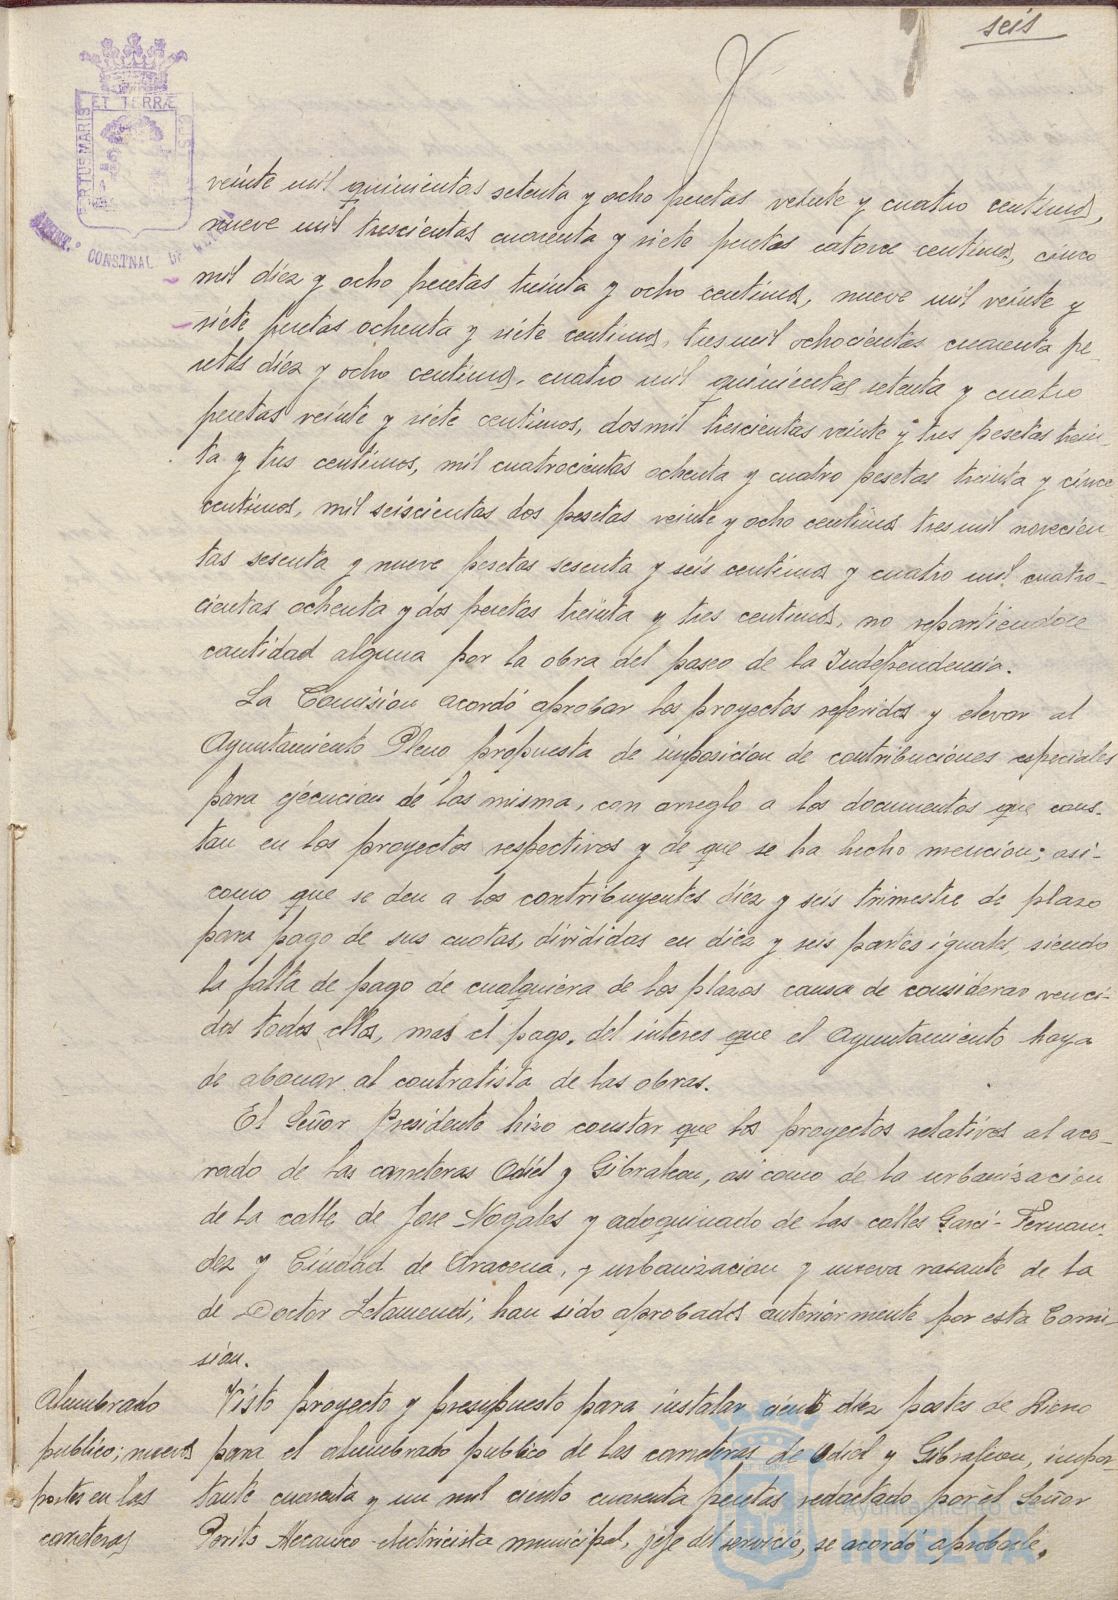 seis
ET TERRÆ
PORTUS MARIS
CUS
CONSTNAL DE
veinte mil quinientas setenta y ocho pesetas veinte y cuatro centimos,
nueve mil trescientas cuarenta y siete pesetas catorce centimos, cinco
mil diez y ocho pesetas treinta y ocho centimos, nueve mil veinte y
siete pesetas ochenta y siete centimos, tres mil ochocientas cuarenta pe-
setas diez y ocho centimos, cuatro mil quinientas setenta y cuatro
pesetas veinte y siete centimos, dos mil trescientas veinte y tres pesetas trein-
ta y tres centimos, mil cuatrocientas ochenta y cuatro pesetas treinta y cinco
centimos, mil seiscientas dos pesetas veinte y ocho centimos tres mil novecien-
tas sesenta y nueve pesetas sesenta y seis centimos y cuatro mil cuatro-
cientas ochenta y dos pesetas treinta y tres centimos, no repartiendose
cantidad alguna por la obra del paseo de la Independencia.
La Comision acordó aprobar los proyectos referidos y elevar al
Ayuntamiento Pleno propuesta de imposicion de contribuciones especiales
para ejecucion de las misma, con arreglo a los documentos que cons-
tan en los proyectos respectivos y de que se ha hecho mencion; asi-
como que se den a los contribuyentes diez y seis trimestre de plazo
para pago de sus cuotas, divididas en diez y seis partes iguales, siendo
la falta de pago de cualquiera de los plazos causa de considerar venci-
dos todos ellos, mas el pago, del interes que el Ayuntamiento haya
de abonar al contratista de las obras.
El Señor Presidente hizo constar que los proyectos relativos al ace-
rado de las carreteras Odiel y Gibraleon, asi como de la urbanizacion
de la calle de Jose Nogales y adoquinado de las calles Garci-Fernan-
dez y Ciudad de Aracena, y urbanizacion y nueva rasante de la
de Doctor Letamendi, han sido aprobados anteriormente por esta Comi-
sion.
Alumbrado publico; nuevos postes en las carreteras
Visto proyecto y presupuesto para instalar ciento diez postes de Hierro
para el alumbrado publico de las carreteras de Odiel y Gibraleon, impor-
tante cuarenta y un mil ciento cuarenta pesetas redactado por el Señor
Perito Mecanico-electricista municipal, jefe del servicio, se acordó aprobarle.
Ayuntamiento de
HUELVA